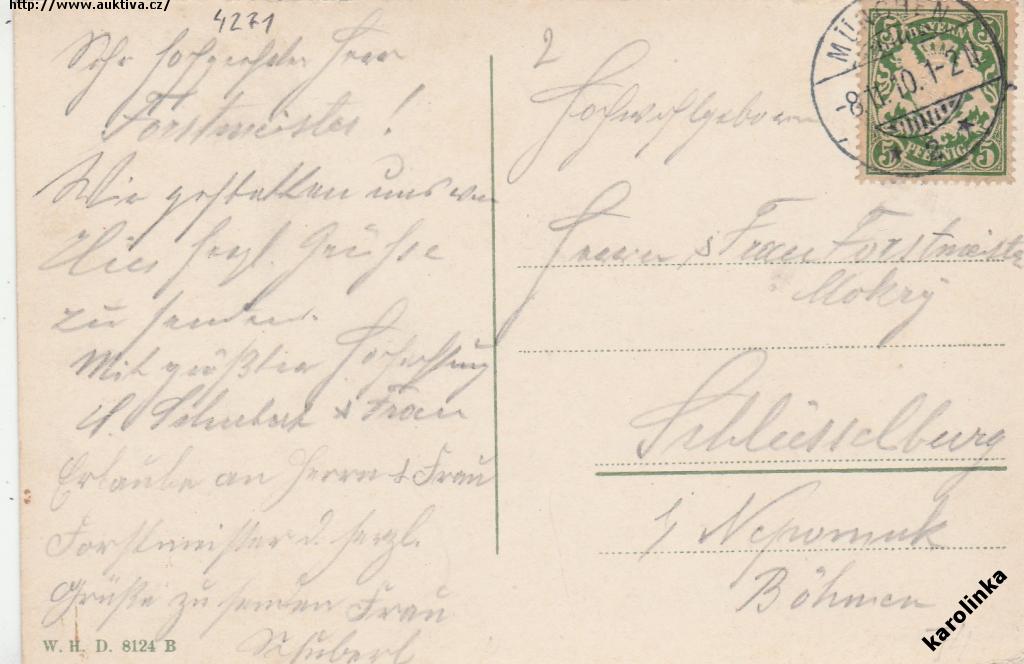 http://www.auktiva.cz/
4271
Sehr hochgeehrter Herr
Forstmeister!
Wir gestatten uns von
Hier herzl. Grüße
zu senden.
Mit größter Hochachtung
Schubert & Frau
Erlaube an Herrn & Frau
Forstmeister d. herzl.
Grüße zu senden Frau
Schubert
W. H. D. 8124 B
2
Hochwohlgeboren
Herrn & Frau Forstmeister
Mokrý
Schlüsselburg
b/ Nepomuk
Böhmen
MÜNCHEN
-8.11.10.1-2 N
* 2 *
BAYERN
5 5
5 PFENNIG 5
karolinka